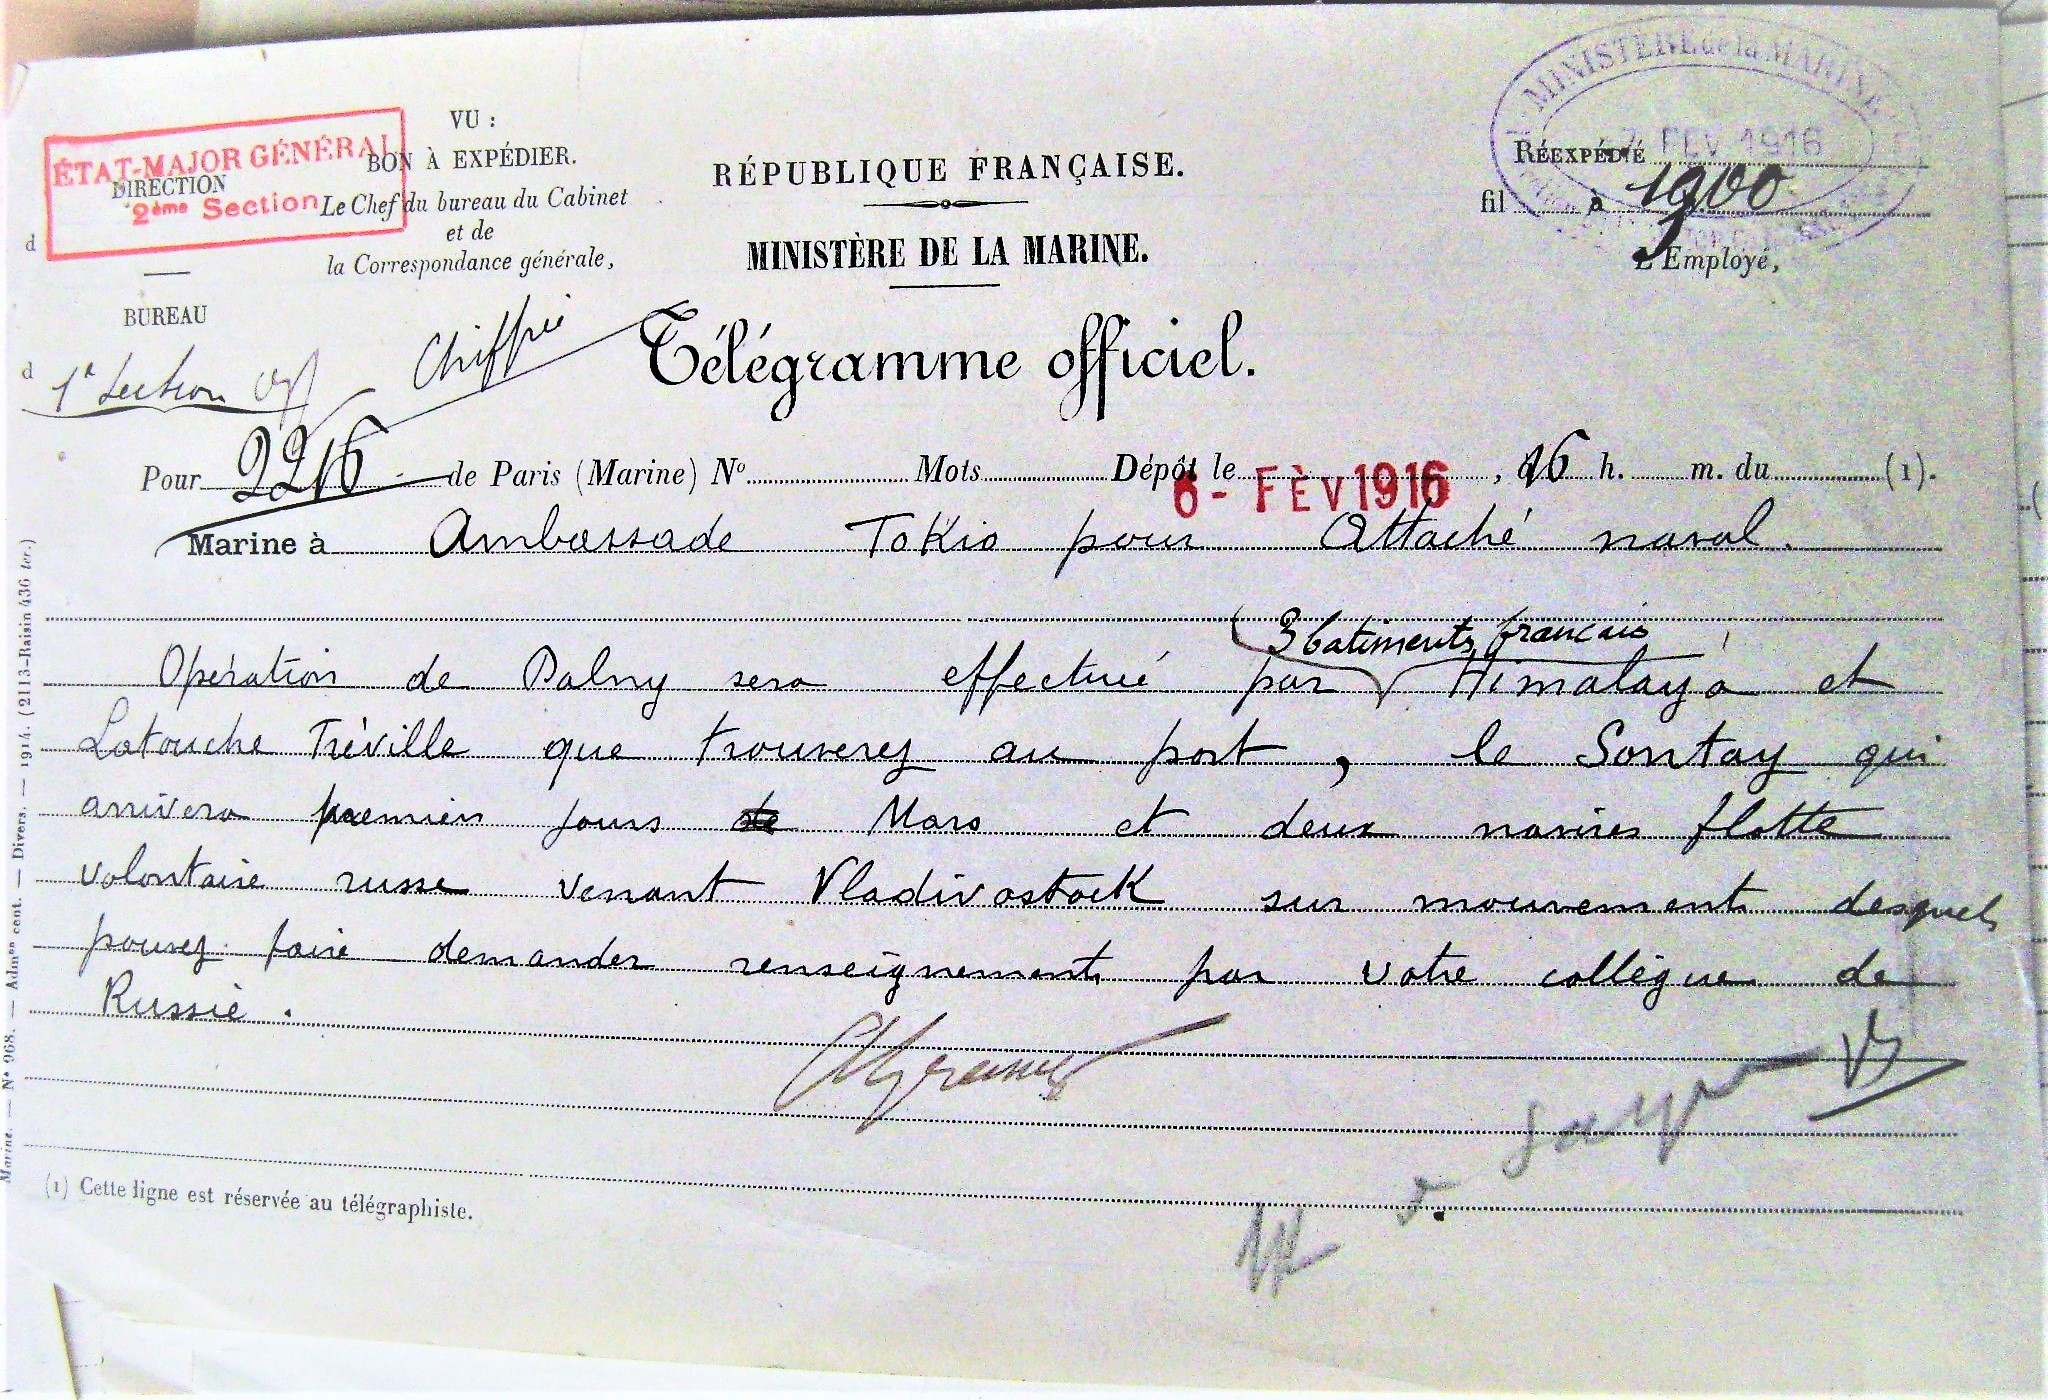 ÉTAT-MAJOR GÉNÉRAL
DIRECTION
2ème Section
d
BUREAU
d
1e Section
VU :
BON À EXPÉDIER.
Le Chef du bureau du Cabinet
et de
la Correspondance générale,
Chiffré
RÉPUBLIQUE FRANÇAISE.
MINISTÈRE DE LA MARINE.
Télégramme officiel.
MINISTÈRE de la MARINE
7 FEV 1916
RÉEXPÉDIÉ
fil à 1900
L'Employé,
Pour 2216 de Paris (Marine) No Mots Dépôt le 6 - FÈV 1916, 16 h. m. du (1).
Marine à Ambassade Tokio pour Attaché naval.
3 batiments francais
Opération de Dalny sera effectué par Himalaya et
Latouche Tréville que trouverez au port, le Sontay qui
arrivera premiers jours de Mars et deux navires flotte
volontaire russe venant Vladivostock sur mouvements desquels
pouvez faire demander renseignements par votre collègue de
Russie.
(1) Cette ligne est réservée au télégraphiste.
Marine. — No 968. — Admon cent. — Divers. — 1914. (2113-Raisin 436 ter.)